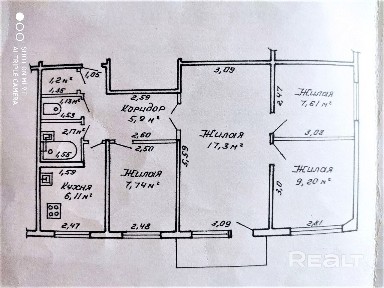 AI TRIPLE CAMERA
1,2 м²
1,05
1,35
1,13м²
1,53
2,17м²
1,55
1,59
Кухня
6,11м²
2,47
2,59
Коридор
5,9 м²
2,60
2,50
Жилая
7,74м²
2,48
3,09
Жилая
17,3м²
5,59
3,09
2,47
Жилая
7,61м²
3,08
Жилая
9,20м²
3,0
2,81
Realt